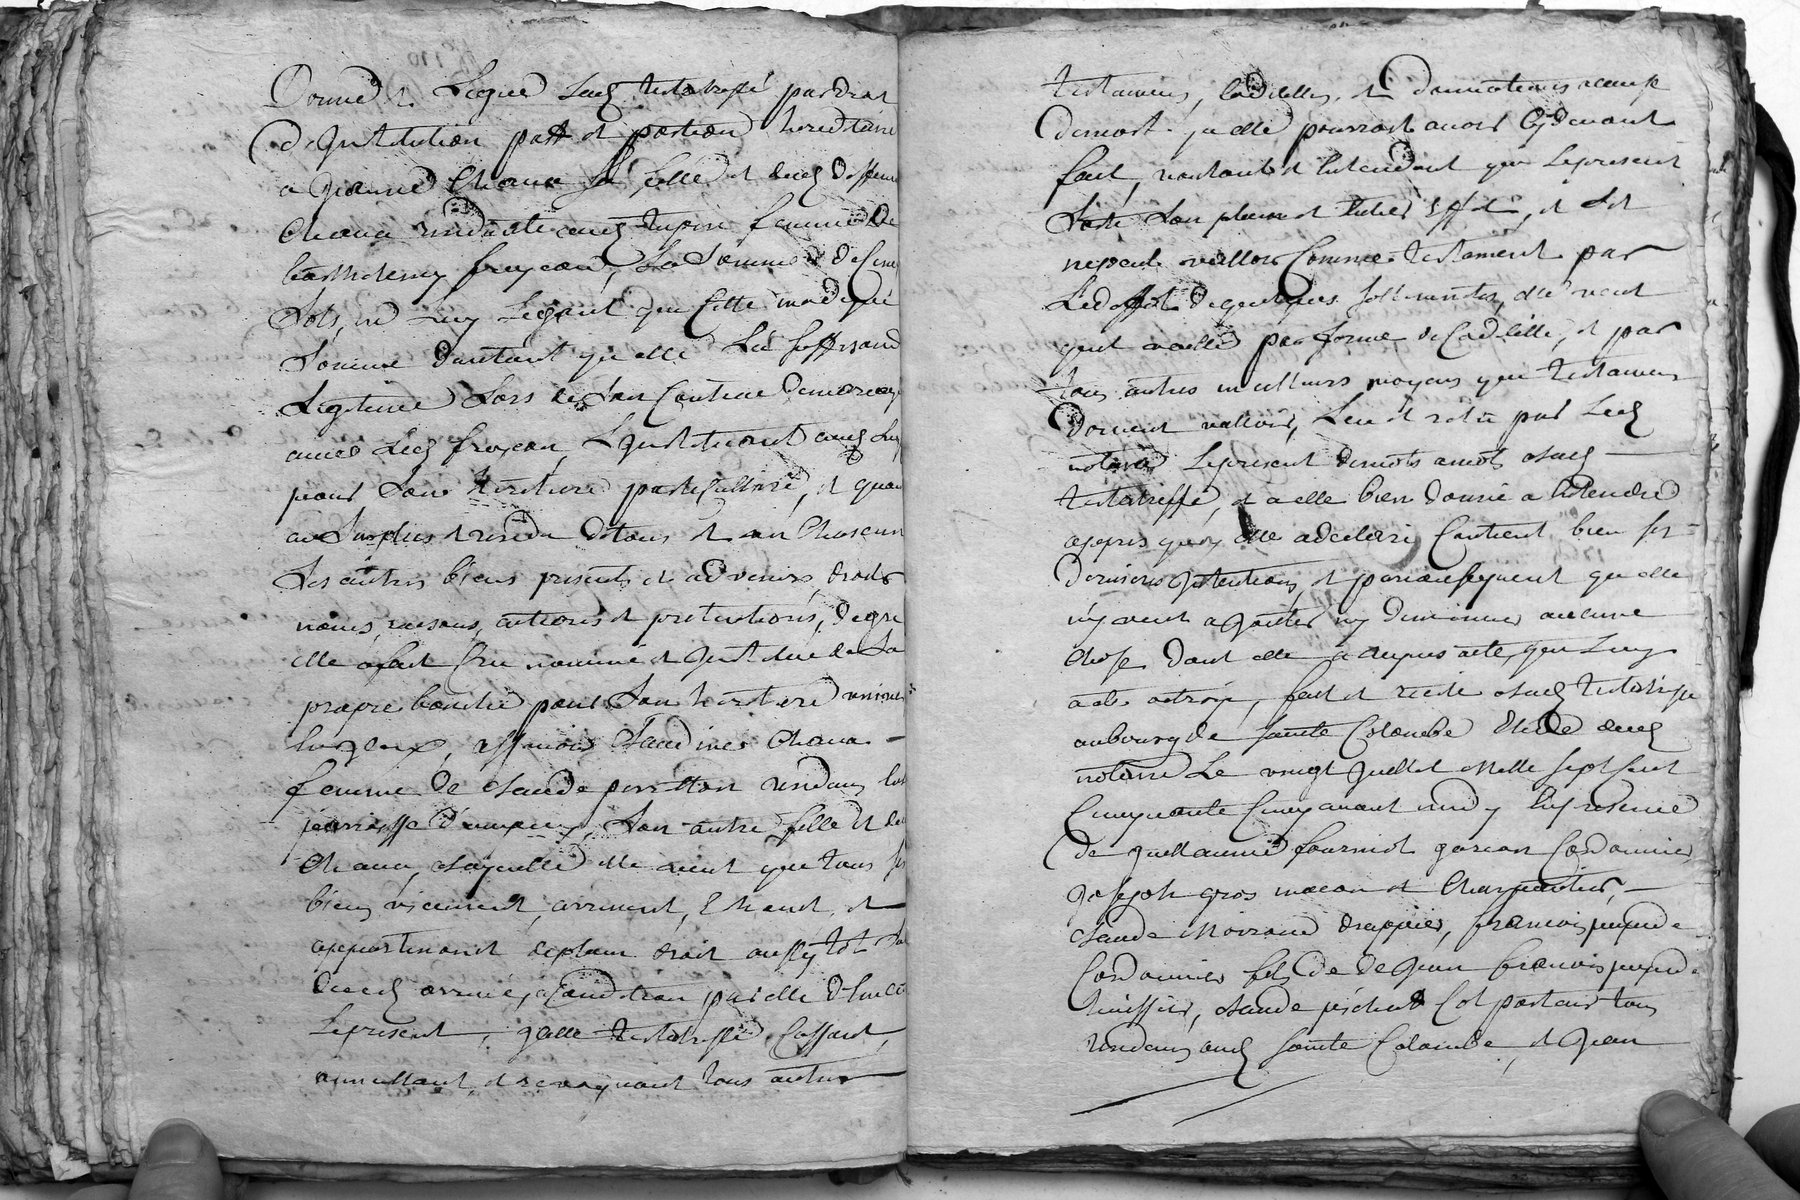 Donne et Legue lad testatrisse par droit
d'Jnstitution part et portion hereditaire
a Jeanne Chana sa fille et dud deffunt
Chana residante aud femme de
barthelemy froyean, La Somme de Cinq
Sols, ne luy Leguant que Cette modique
Somme d'autant qu'elle Luy
Legitime Lors de Son Contract de mariage
avec Led froyean, L'Jnstituant
pour Son heritiere particulliere, et quan
au Surplus et residu de tous et un Chascun
Ses autres biens presents et advenirs, droits
noms, raisons, actions et pretentions, de gre
elle a fait Cree nommé et Jnstitue de Sa
propre bouche pour Son heritiere universelle
assavoir Claudine Chana
femme de Claude residans
Son autre fille et dud
Chana, a laquelle elle veut que tous ses
biens viennent, arrivent, Echeent, et
appartiennent de plein droit aussytot Son
deced arrivé, a Condition par elle
Lepresent, Jcelle testatrisse Cassant,
annullant, et revoquant tous autres
testamens, Codicilles, et donnations a cause
de mort qu'elle pourroit avoir Cydevant
fait, voulant et Entendant que Lepresent
Sorte Son plein et Entier Effet, et S'il
ne peut valloir Comme testament par
Ledeffaut de quelques sollemnites, elle veut
qu'il vaille par forme de Codicille, et par
tous autres meilleurs moyens que testamens
doivent valloir, Leu et relu par Led
notaire Lepresent de mots a mots a lad
testatrisse, et a elle bien donné a Entendre
apprès quoy elle a declaré Contient bien ses
dernieres Jntentions, et par consequent qu'elle
n'y veut ajouter ny diminuer aucune
chose dont elle a requis acte, que Luy
ai octroyé, fait et recité a lad testatrisse
au bourg de Sainte Colombe Etude dud
notaire Le vingt Juillet Mille Sept Cent
Cinquante Cinq avant midy En presence
de Guillaume fourniol garcon Cordonnier
Joseph gros macon et Charpentier,
Claude Moirand drappier, francois
Cordonnier fils de de Jean francois
huissier, Claude Colporteur tous
residans aud Sainte Colombe, et Jean